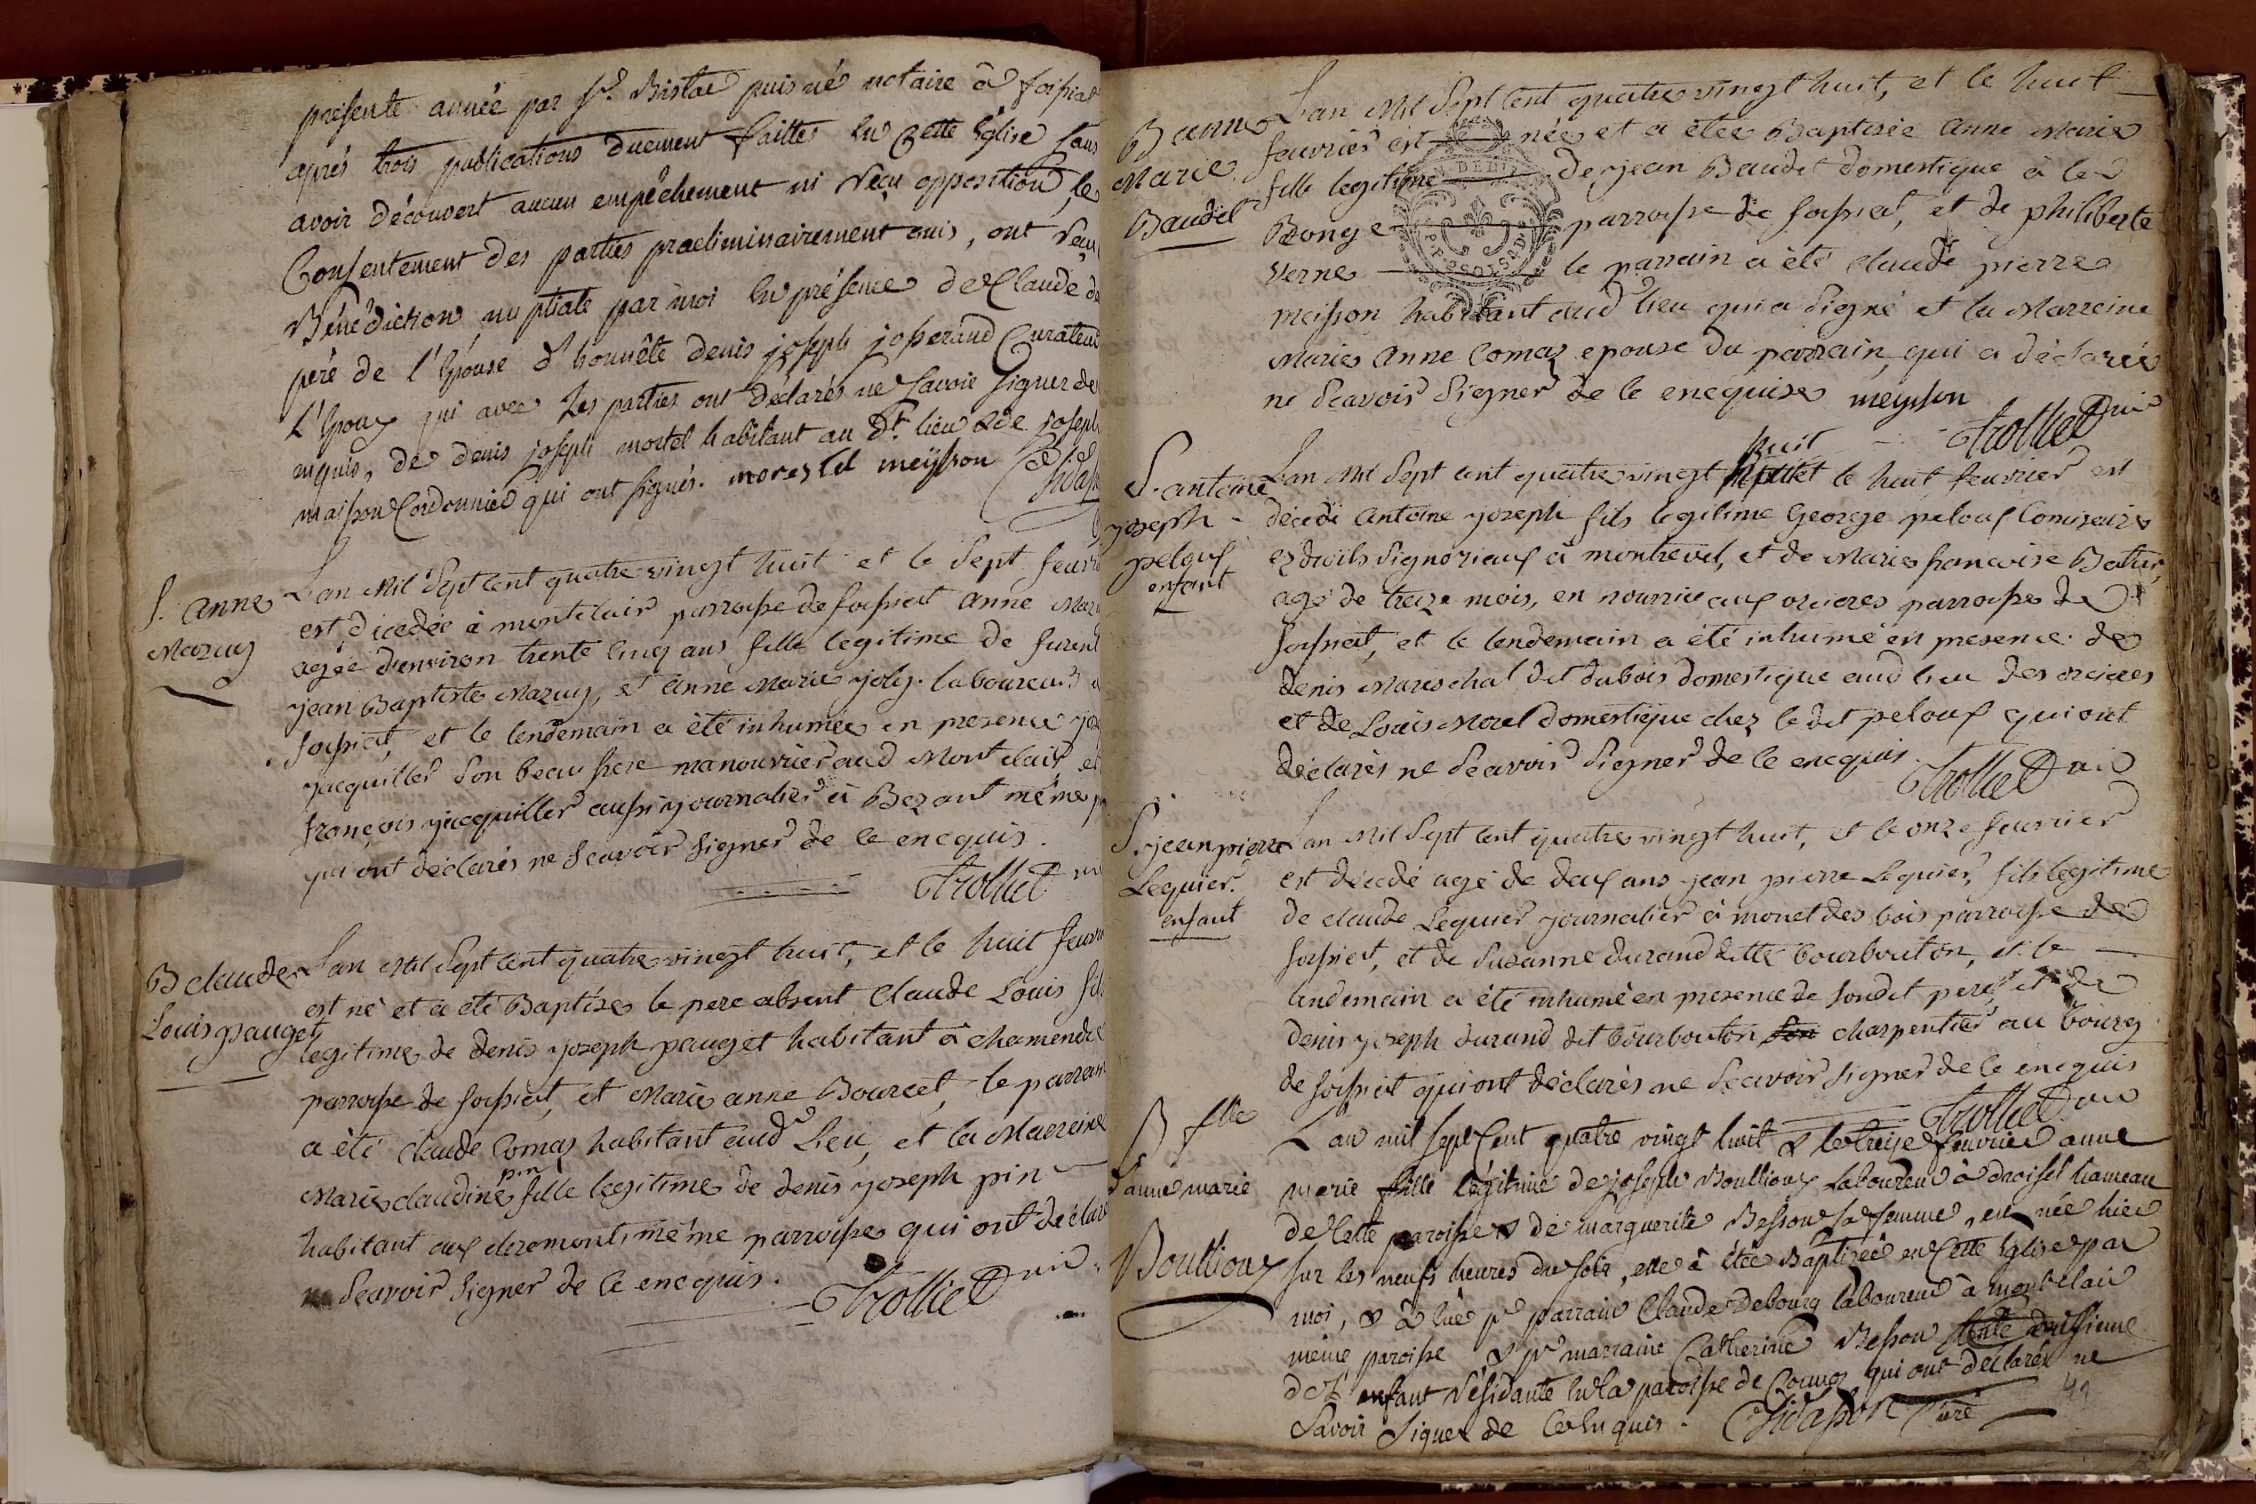 presente année par Sr. puisné notaire à foissiat
après trois publications duement faittes en Cette Eglise sans
avoir découvert aucun empêchement ni reçu opposition, le
Consentement des parties praeliminairement ouis, ont reçu
Bénédiction nuptiale par moi en présence de Claude
père de l'Epouse d'honnête denis joseph josserand Curateur
L'Epoux qui avec Les parties ont déclarés ne savoir signer de
enquis, de denis joseph mortel habitant au dt. lieu & de joseph
maisson Cordonnier qui ont signés. morestel meysson
S. anne
Mazuy
L'an Mil Sept cent quatre vingt huit et le Sept feuvri
est décedée à montclair parroisse de foissiat anne Maz
agée d'environ trente cinq ans fille legitime de furent
jean Baptiste Mazuy, et anne Marie joly laboureurs
foissiat, et le lendemain a été inhumée en presence
jacquiller son beau frere manouvrier aud Mont clair et
françois jacquiller aussi journalier à Bezant même
qui ont déclarés ne sçavoir signer de ce enequis.
Trolliet vic
B claude
Louis pauget
L'an Mil Sept cent quatre vingt huit, et le huit feuv
est né et a été Baptisé le pere absent Claude Louis fils
legitime de denis joseph pauget habitant à chamendre
parroisse de foissiat, et Marie anne Bourcet, le parrain
a été claude Comas habitant aud Lieu, et la Marreine
Marie claudine pin fille legitime de denis joseph pin
habitant aux deremonts même parroisse qui ont déclaré
ne sçavoir signer de ce enequis.
Trolliet vic
B anne
Marie
Baudet
L'an Mil Sept cent quatre vingt huit, et le huit
feuvrier est née et a étée Baptisée anne Marie
fille legitime de jean Baudet domestique à la
Ronge parroisse de foissiat, et de philiberte
Verne le parrain a été claude pierre
meisson habitant aud lieu qui a signé et la Marreine
Marie anne Comas epouse du parrain, qui a déclaré
ne sçavoir signer de ce enequise meysson
Trolliet vic
S. antoine
joseph
peloux
enfant
L'an Mil Sept cent quatre vingt huit et le huit feuvrier est
décedé antoine joseph fils legitime George peloux Comisaire
ez droits signoriaux à montrevel, et de Marie francoise
agé de treize mois, en nourrice aux oicieres parroisse de
foissiat, et le lendemain a été inhumé en presence de
denis Mareschal dit dubois domestique aud lieu des oicieres
et de Louis Morel domestique chez le dit peloux qui ont
déclarés ne sçavoir signer de ce enequis.
Trolliet vic
S. jean pierre
Lequier.
enfant
L'an Mil Sept cent quatre vingt huit, et le onze feuvrier
est décedé agé de deux ans jean pierre Lequier, fils legitime
de claude Lequier journalier à monet des bois parroisse de
foissiat, et de Suzanne durand ditte bourbouton, et le
lendemain a été inhumé en presence de sondit pere, et de
denis joseph durand dit bourbouton charpentier au bourg
de foissiat qui ont déclarés ne sçavoir signer de ce enequis
Trolliet vic
B
d'anne marie
Boullioux
L'an mil sept Cent quatre vingt huit & le treize feuvrier anne
marie fille légitime de joseph Boullioux Laboureur à droiset hameau
de Cette paroisse & de marguerite Besson sa femme, est née hier
sur les neufs heures du soir, elle a été Baptisée en Cette Eglise par
moi, & a eue pr parrain Claude Debourg laboureur à montclair
même paroisse & pr marraine Catherine Besson
de l'enfant résidante en la paroisse de qui ont déclarés ne
savoir signer de Ce Enquis. Curé